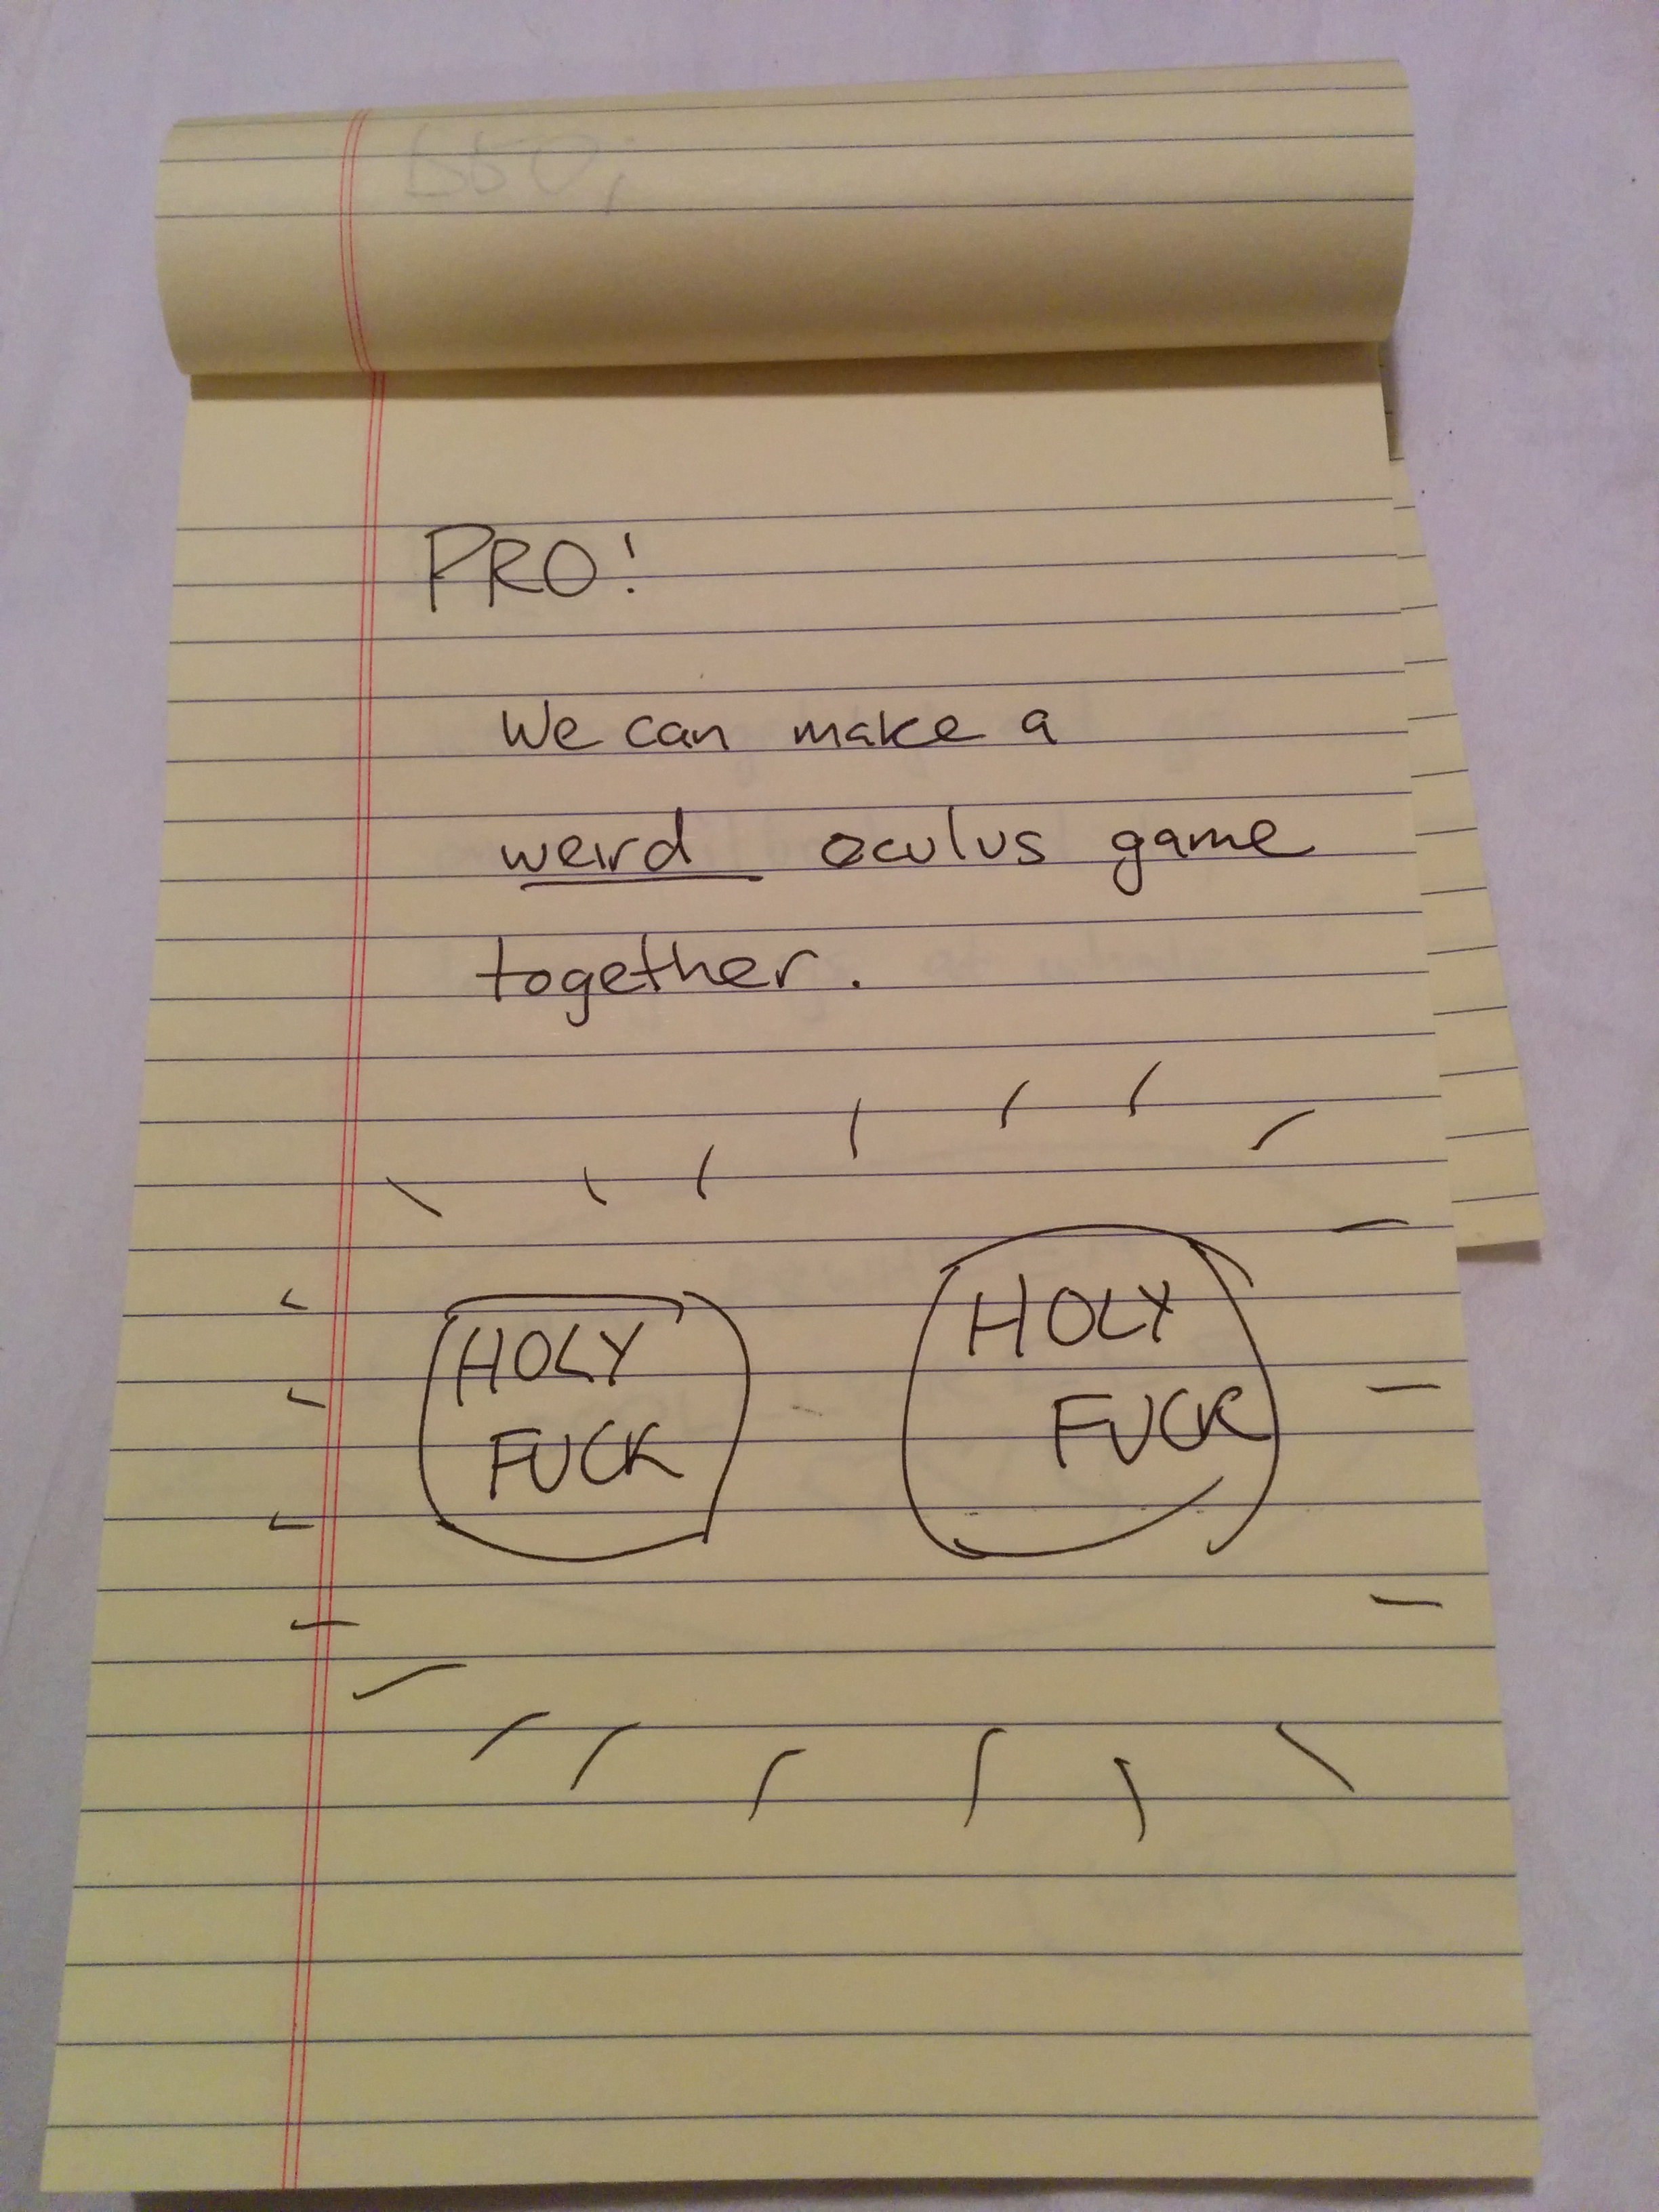 PRO!
We can make a
weird oculus game
together.
HOLY
FUCK
HOLY
FUCK